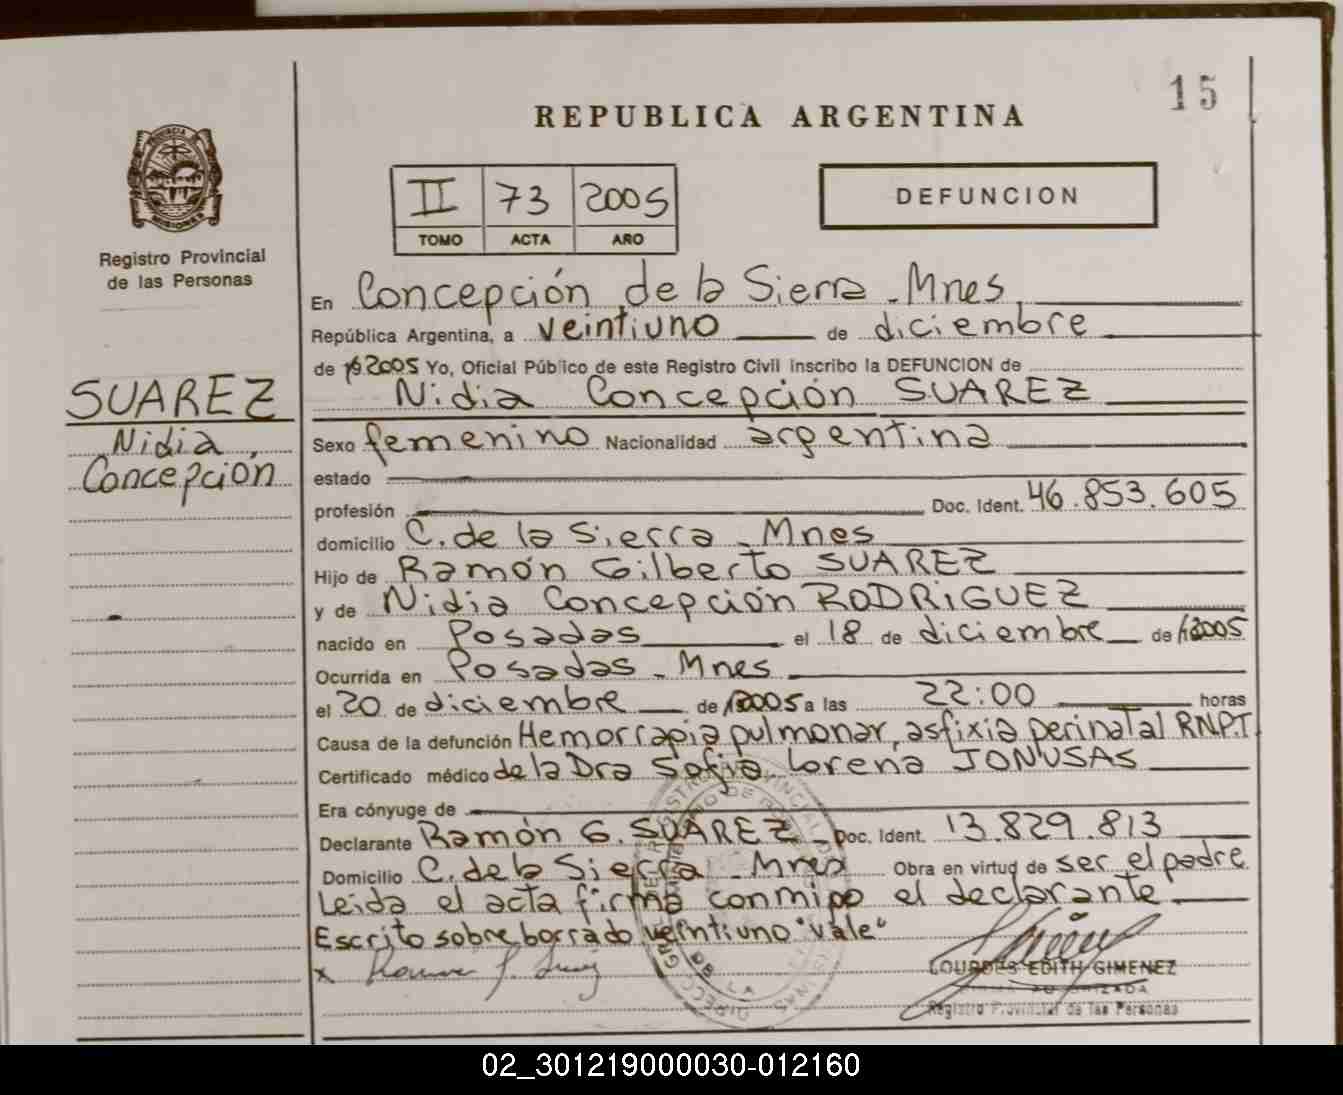 15
REPUBLICA ARGENTINA
II 73 2005
TOMO ACTA AÑO
DEFUNCION
Registro Provincial
de las Personas
SUAREZ
Nidia
Concepción
En Concepción de la Sierra - Mnes,
República Argentina, a veintiuno de diciembre
de 2005 Yo, Oficial Público de este Registro Civil inscribo la DEFUNCION de
Nidia Concepción SUAREZ
Sexo femenino Nacionalidad argentina
estado
profesión Doc. Ident. 46.853.605
domicilio C. de la Sierra - Mnes
Hijo de Ramón Gilberto SUAREZ
y de Nidia Concepción RODRIGUEZ
nacido en Posadas el 18 de diciembre de 2005
Ocurrida en Posadas - Mnes
el 20 de diciembre de 2005 a las 22:00 horas
Causa de la defunción Hemorragia pulmonar, asfixia perinatal RNPT
Certificado médico de la Dra Sofia Lorena JONUSAS
Era cónyuge de
Declarante Ramón G. SUAREZ - Doc. Ident. 13.829.813
Domicilio C. de la Sierra - Mnes Obra en virtud de ser el padre
Leida el acta firma conmigo el declarante
Escrito sobre borrado veintiuno "vale"
x
LOURDES EDITH GIMENEZ
FIRMA AUTORIZADA
Registro Provincial de las Personas
02_301219000030-012160